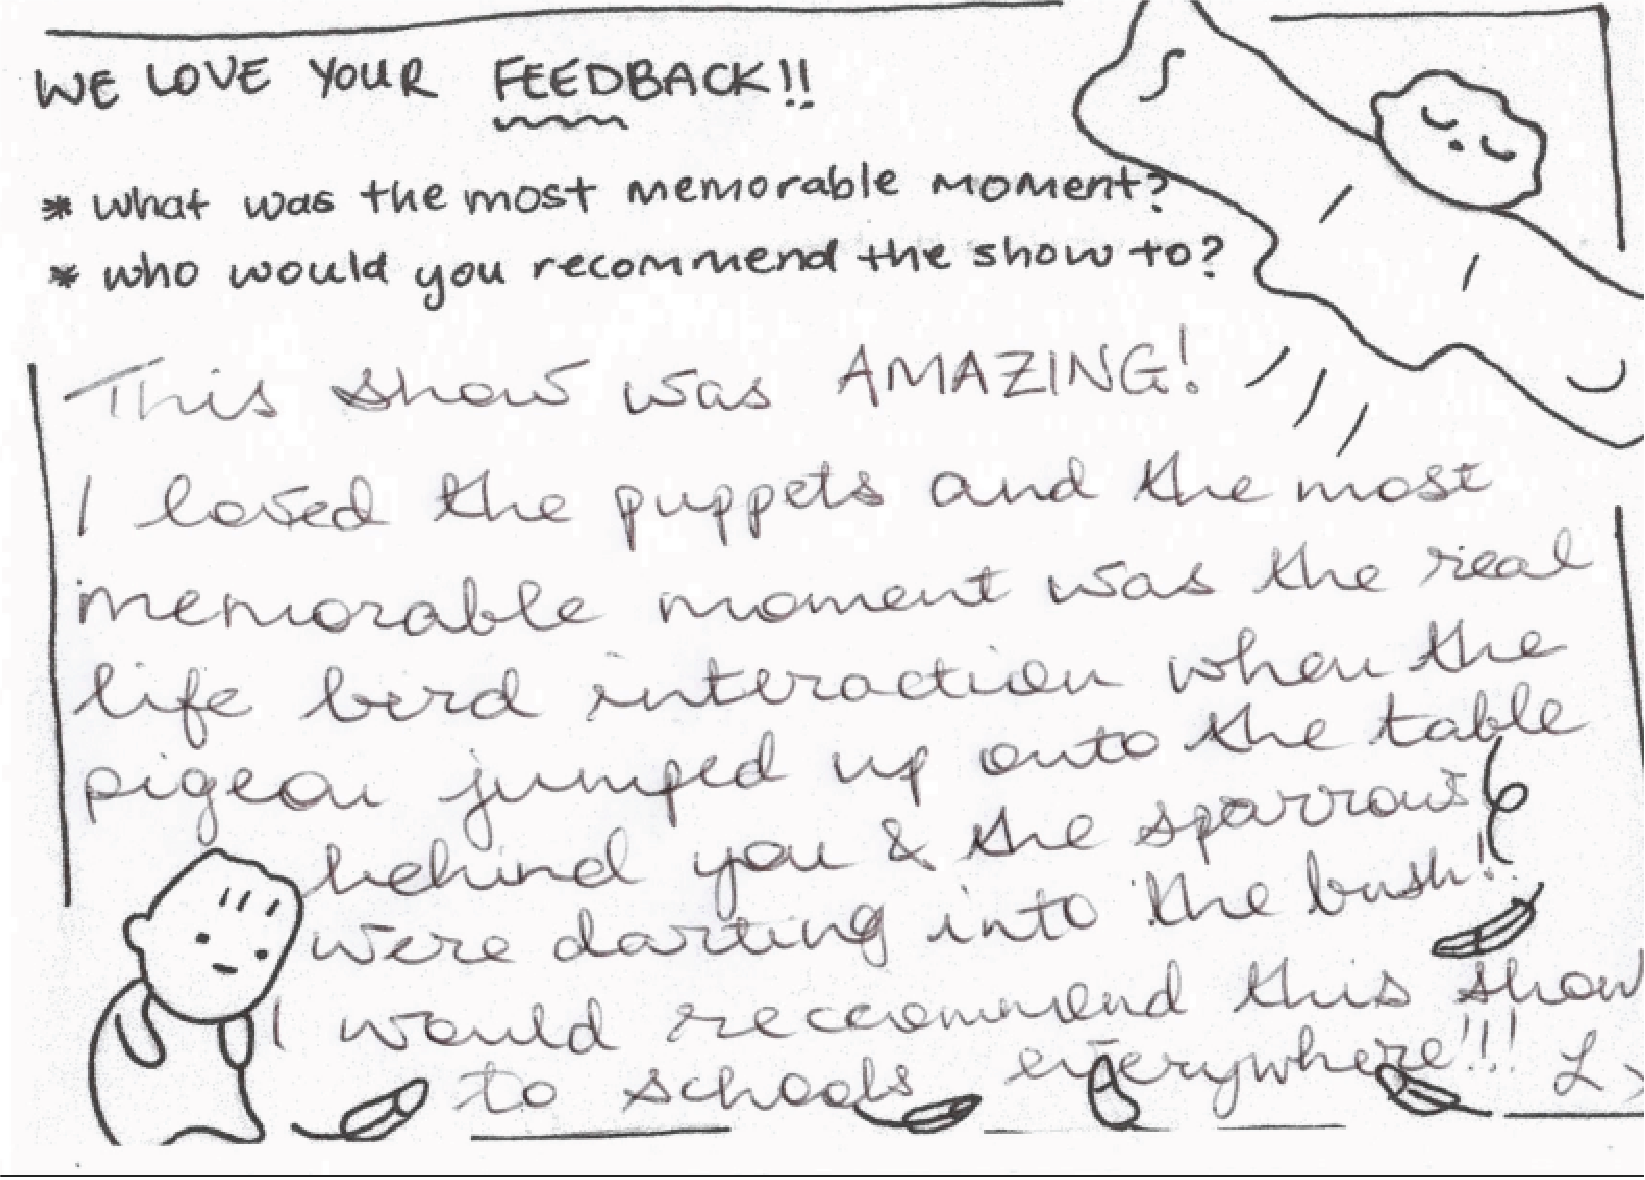 WE LOVE YOUR FEEDBACK!!
* what was the most memorable moment?
* who would you recommend the show to?
This show was AMAZING!
I loved the puppets and the most
memorable moment was the real
life bird interaction when the
pigeon jumped up onto the table
behind you & the sparrows
were darting into the bush!!
I would reccommend this show
to schools everywhere!!! L x